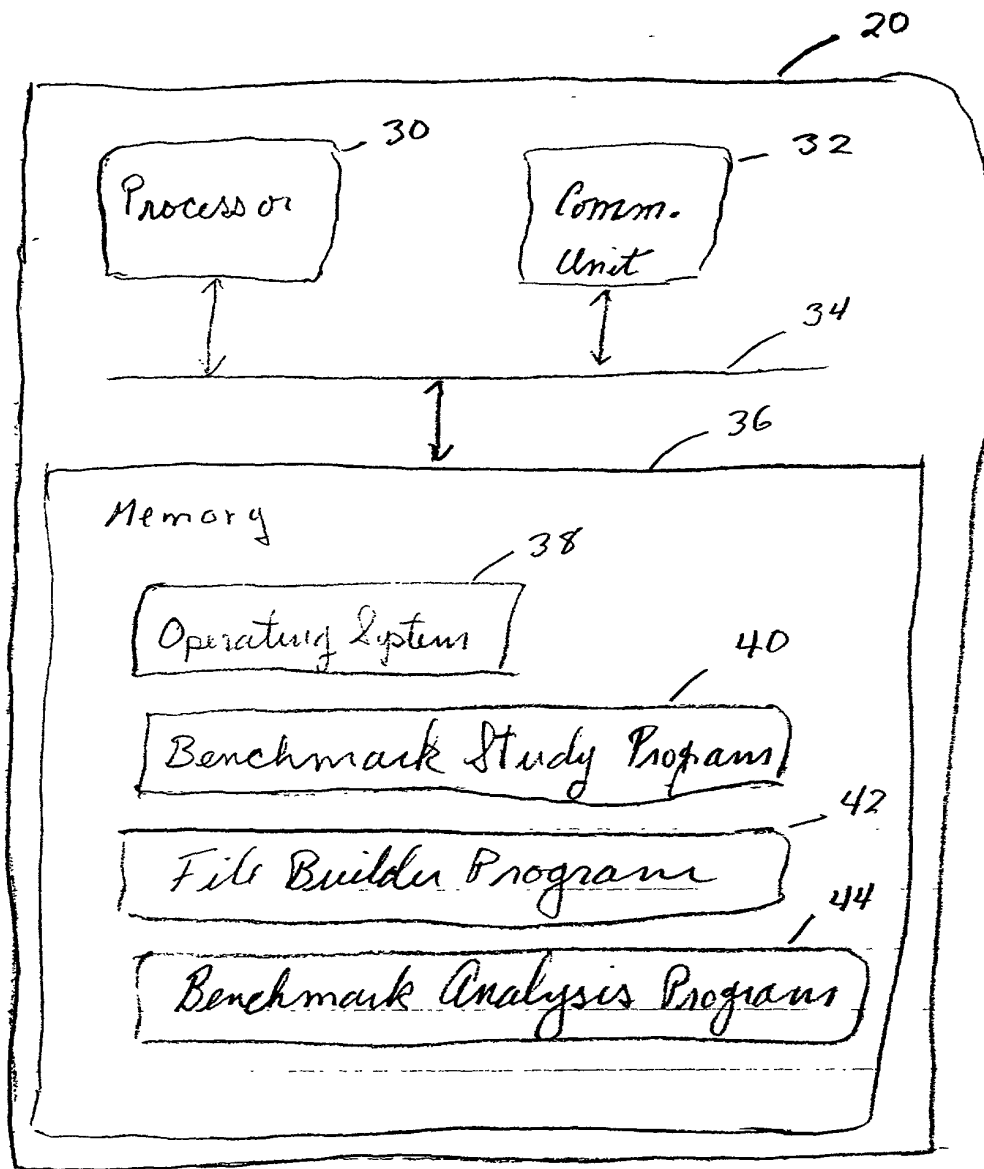 20
30
32
Processor
Comm.
Unit
34
36
Memory
38
Operating System
40
Benchmark Study Program
42
File Builder Program
44
Benchmark Analysis Program